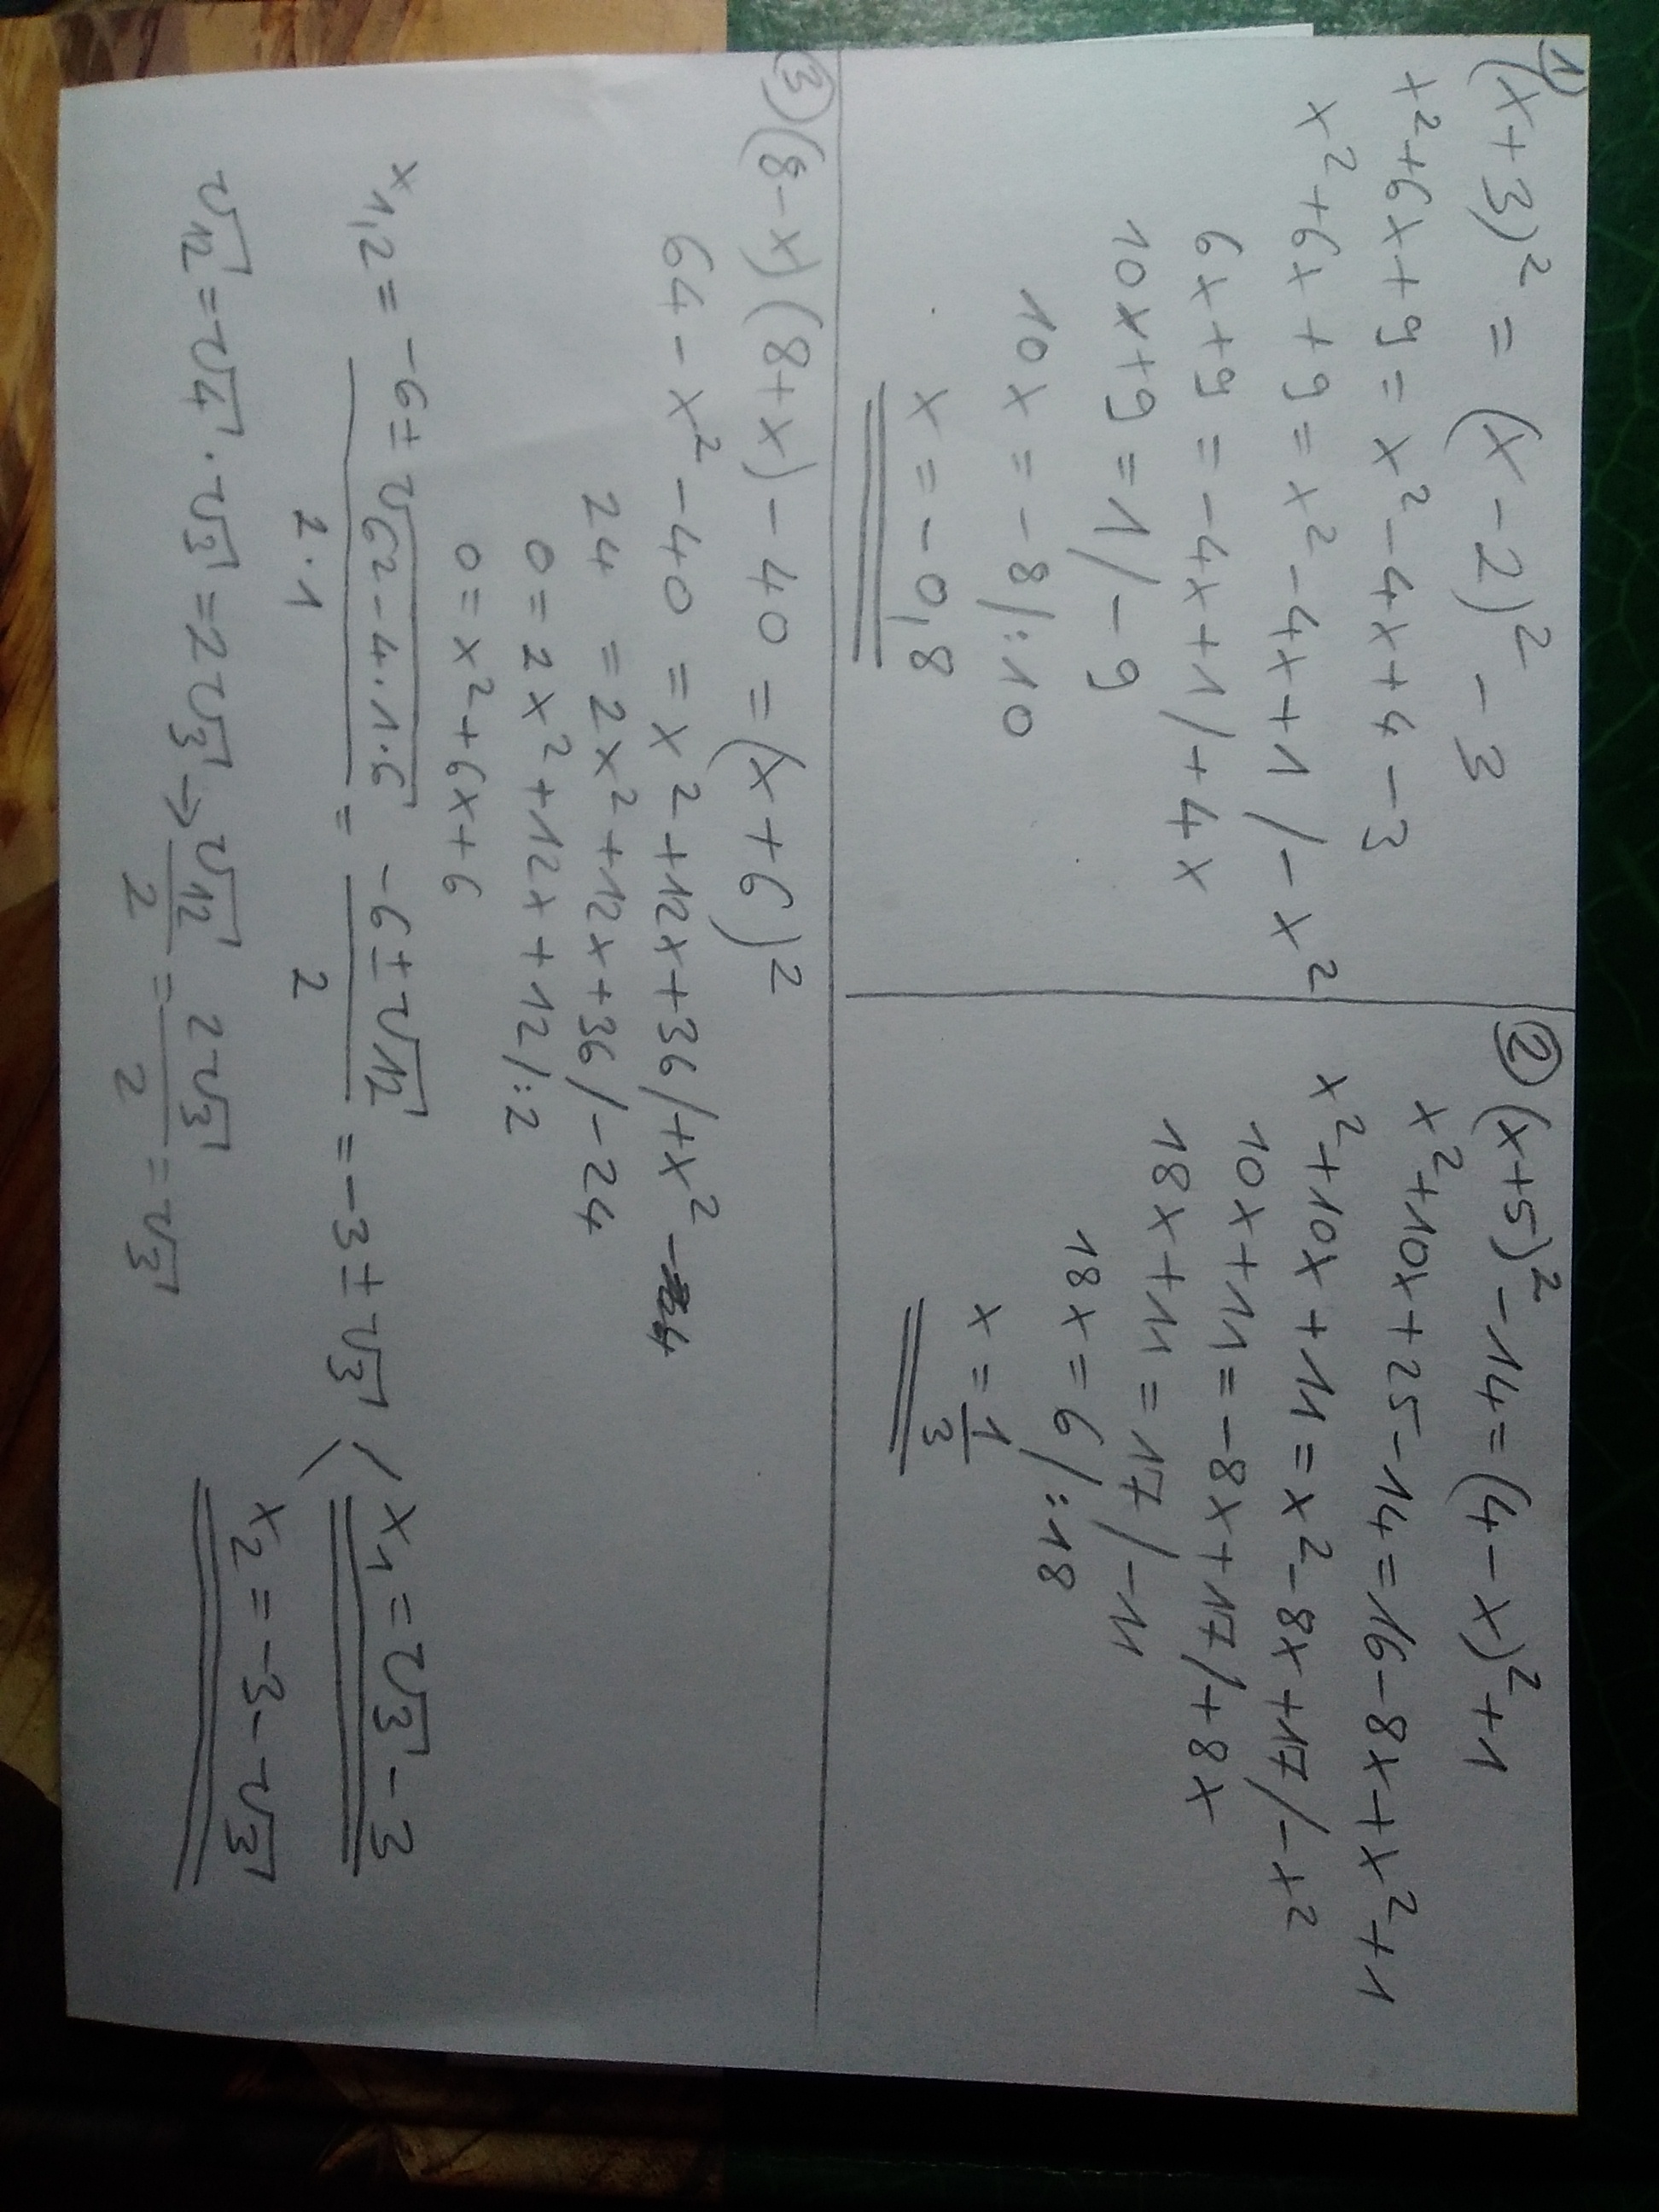 1)
(x+3)² = (x-2)² - 3
x²+6x+9 = x²-4x+4-3
x²+6x+9 = x²-4x+1 /-x²
6x+9 = -4x+1 /+4x
10x+9 = 1 /-9
10x = -8 /:10
x = -0,8
② (x+5)²-14 = (4-x)²+1
x²+10x+25-14 = 16-8x+x²+1
x²+10x+11 = x²-8x+17 /-x²
10x+11 = -8x+17 /+8x
18x+11 = 17 /-11
18x = 6 /:18
x = 1/3
③ (8-x)(8+x)-40 = (x+6)²
64-x²-40 = x²+12x+36 /+x²
24 = 2x²+12x+36 /-24
0 = 2x²+12x+12 /:2
0 = x²+6x+6
x₁,₂ = (-6±√(6²-4·1·6))/(2·1) = (-6±√12)/2 = -3±√3 ⟨ x₁ = √3-3
x₂ = -3-√3
√12 = √4·√3 = 2√3 → √12/2 = 2√3/2 = √3